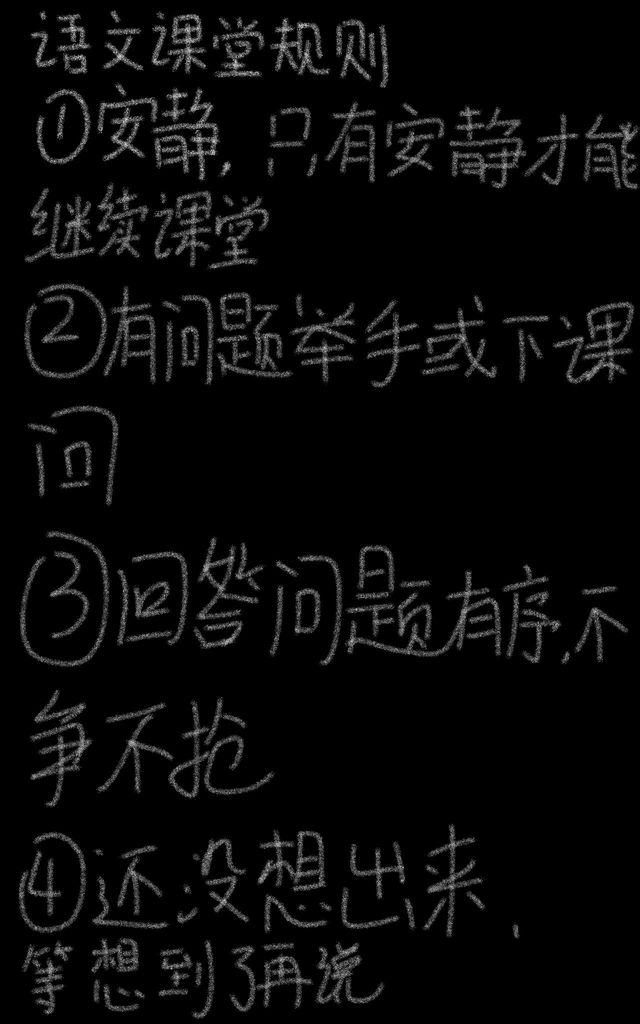 语文课堂规则
①安静，只有安静才能
继续课堂
②有问题举手或下课
问
③回答问题有序，不
争不抢
④还没想出来，
等想到了再说